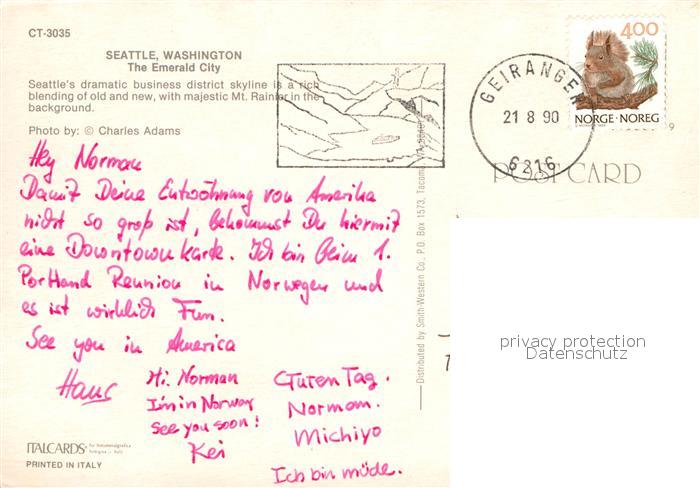 CT-3035
SEATTLE, WASHINGTON
The Emerald City
Seattle's dramatic business district skyline is a rich
blending of old and new, with majestic Mt. Rainier in the
background.
Photo by: © Charles Adams
GEIRANGER
21 8 90
6216
400
NORGE·NOREG
POST CARD
Hey Norman
Damit Deine Entwöhnung von Amerika
nicht so groß ist, bekommst Du hiermit
eine Downtownkarte. Ich bin beim 1.
Portland Reunion in Norwegen und
es ist wirklich Fun.
See you in America
Hans
Hi. Norman
I'm in Norway
See you soon!
Kei
Guten Tag.
Norman.
Michiyo
Ich bin müde.
Distributed by Smith-Western Co., P.O. Box 1573, Tacoma, WA
privacy protection
Datenschutz
ITALCARDS
PRINTED IN ITALY